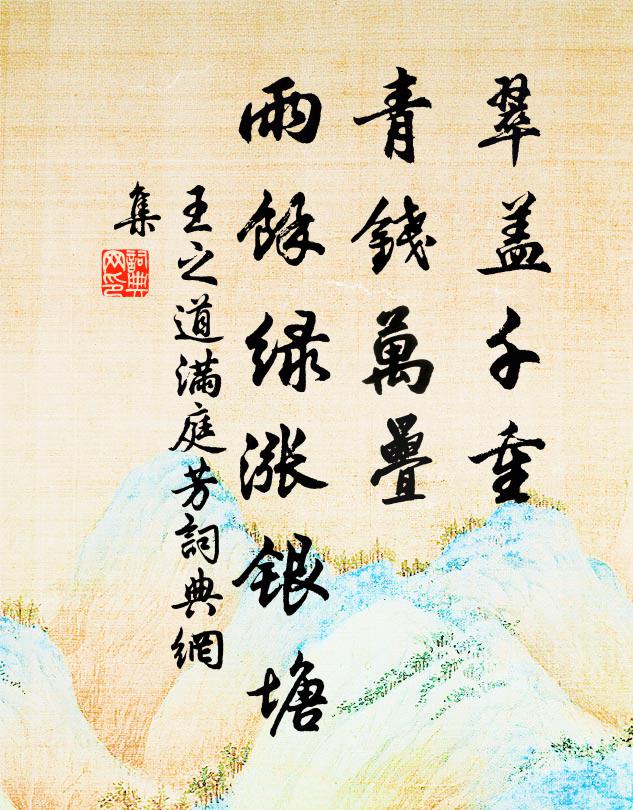 翠盖千重
青錢萬疊
雨餘绿漲銀塘
王之道满庭芳詞典網
集
詞典
网印